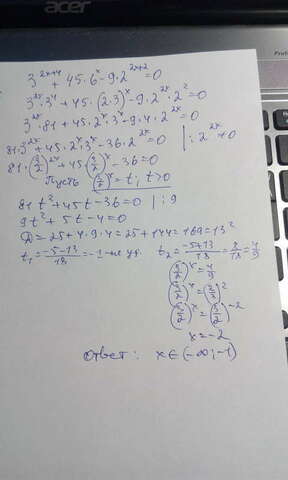 acer
3^{2x+4} + 45·6^x - 9·2^{2x+2} = 0
3^{2x}·3^4 + 45·(2·3)^x - 9·2^{2x}·2^2 = 0
3^{2x}·81 + 45·2^x·3^x - 9·4·2^{2x} = 0
81·3^{2x} + 45·2^x·3^x - 36·2^{2x} = 0 | : 2^{2x} ≠ 0
81·(3/2)^{2x} + 45·(3/2)^x - 36 = 0
Пусть (3/2)^x = t; t>0
81t^2 + 45t - 36 = 0 | : 9
9t^2 + 5t - 4 = 0
D = 25 + 4·9·4 = 25 + 144 = 169 = 13^2
t_1 = (-5-13)/18 = -1 - не уд. t_2 = (-5+13)/18 = 8/18 = 4/9
(3/2)^x = 4/9
(3/2)^x = (2/3)^2
(3/2)^x = (3/2)^{-2}
x = -2
Ответ: x ∈ (-∞; -1)